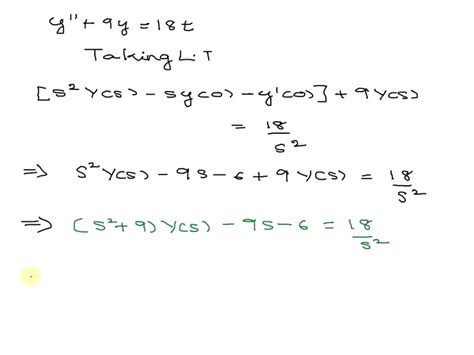 y'' + 9y = 18t
Taking L.T
[s²Y(s) - sy(0) - y'(0)] + 9Y(s)
= 18/s²
=> s²Y(s) - 9s - 6 + 9Y(s) = 18/s²
=> (s²+9)Y(s) - 9s - 6 = 18/s²